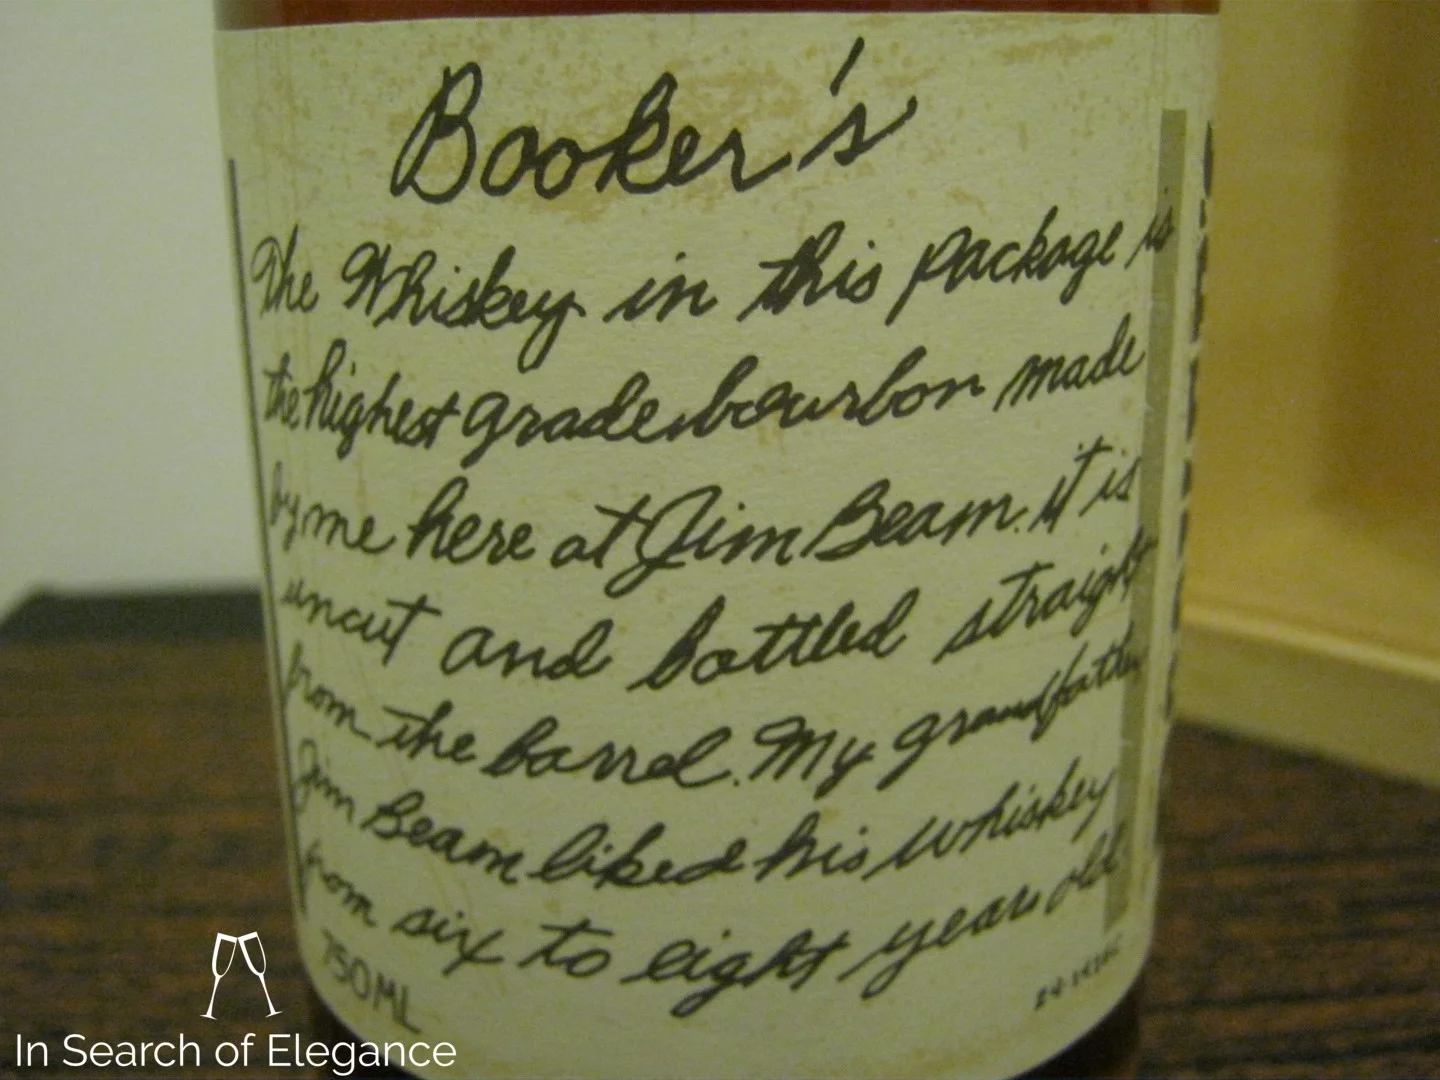 Booker's
The Whiskey in this package is
the highest grade bourbon made
by me here at Jim Beam. it is
uncut and bottled straight
from the barrel. My grandfather
Jim Beam liked his whiskey
from six to eight years old.
750ML
In Search of Elegance